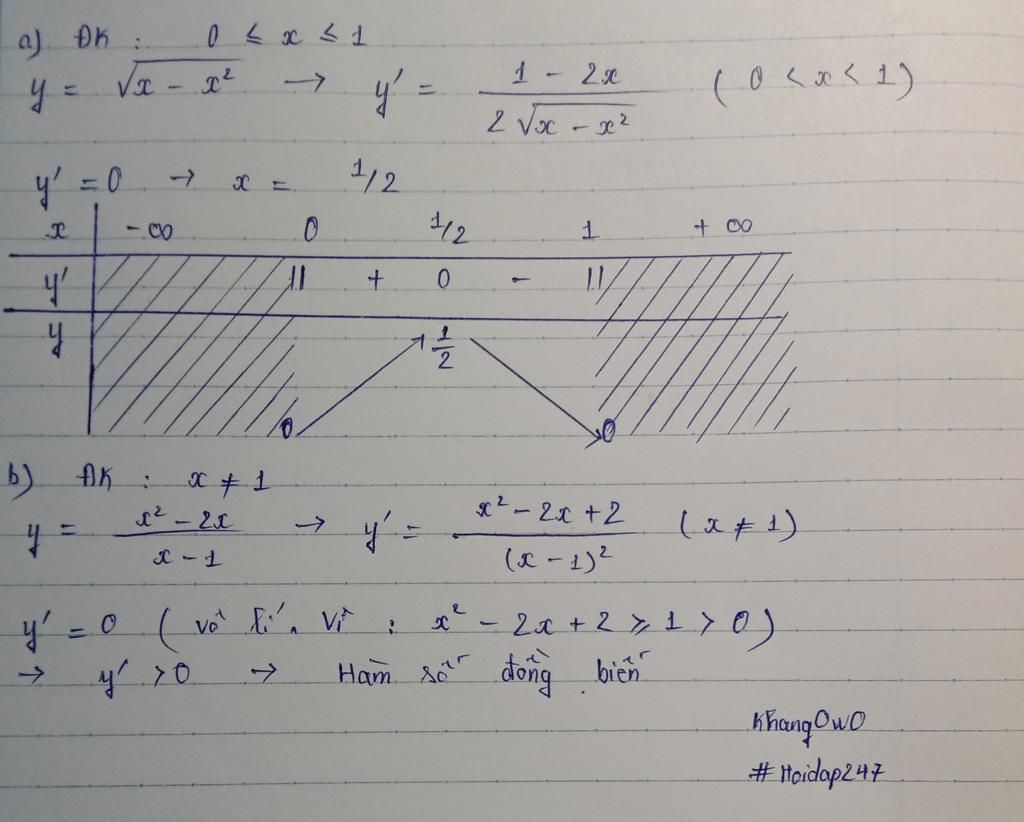 a) ĐK : 0 ≤ x ≤ 1
y = √(x - x²) → y' = (1 - 2x)/(2√(x - x²)) ( 0 < x < 1 )
y' = 0 → x = 1/2
x -∞ 0 1/2 1 +∞
y' || + 0 - ||
y 0 1/2 0
b) ĐK : x ≠ 1
y = (x² - 2x)/(x - 1) → y' = (x² - 2x + 2)/(x - 1)² ( x ≠ 1 )
y' = 0 ( vô lí. Vì : x² - 2x + 2 ≥ 1 > 0 )
→ y' > 0 → Hàm số đồng biến
KhangOwO
#Hoidap247